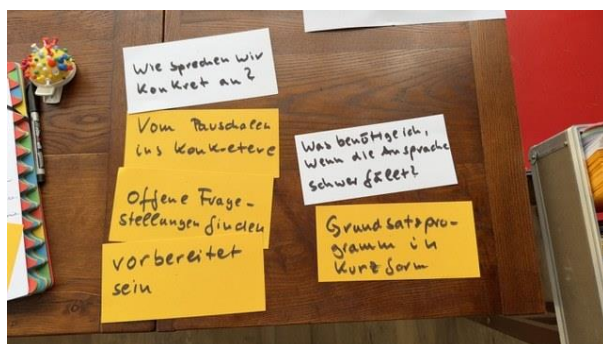 Wie sprechen wir
konkret an?
Vom Pauschalen
ins Konkretere
Offene Frage-
stellungen finden
vorbereitet
sein
Was benötige ich,
wenn die Ansprache
schwer fällt?
Grundsatzpro-
gramm in
Kurzform